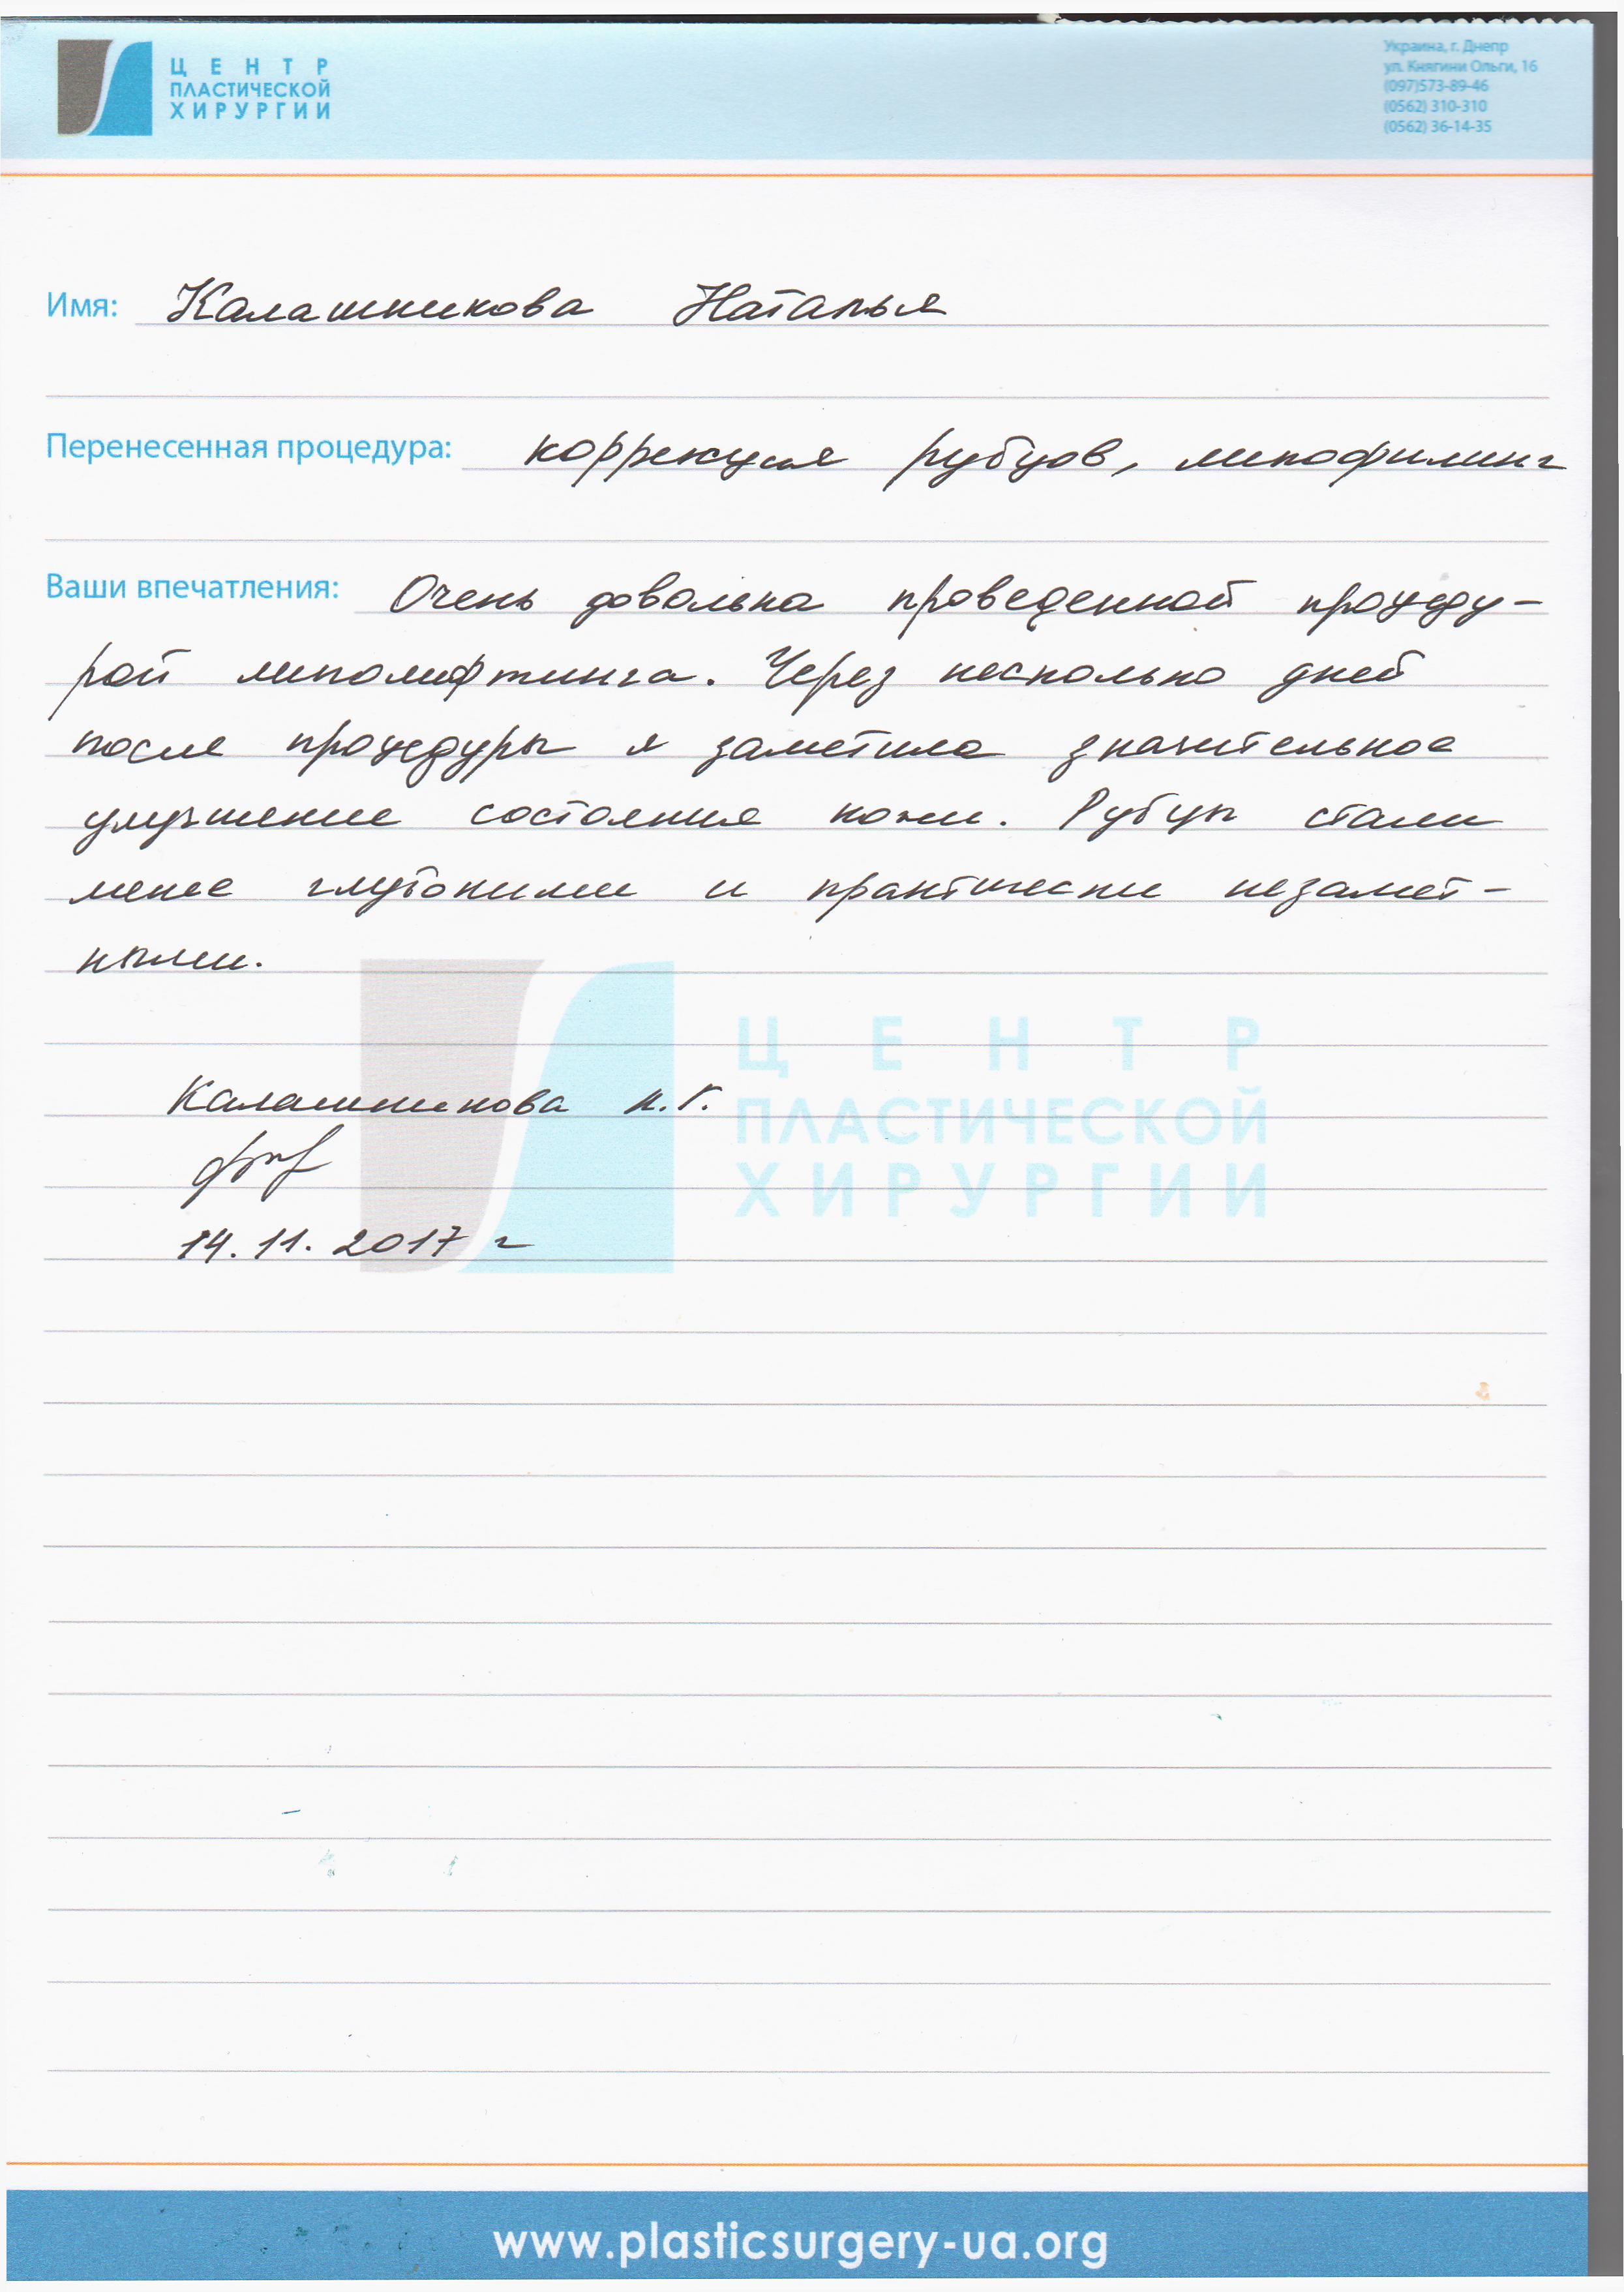 ЦЕНТР
ПЛАСТИЧЕСКОЙ
ХИРУРГИИ
Украина, г. Днепр
ул. Княгини Ольги, 16
(097)573-89-46
(0562) 310-310
(0562) 36-14-35
Имя: Калашникова Наталья
Перенесенная процедура: коррекция рубцов, липофилинг
Ваши впечатления: Очень довольна проведенной процеду-
рой липолифтинга. Через несколько дней
после процедуры я заметила значительное
улучшение состояния кожи. Рубцы стали
менее глубокими и практически незамет-
ными.
ЦЕНТР
ПЛАСТИЧЕСКОЙ
ХИРУРГИИ
Калашникова Н.Г.
14.11.2017 г
www.plasticsurgery-ua.org